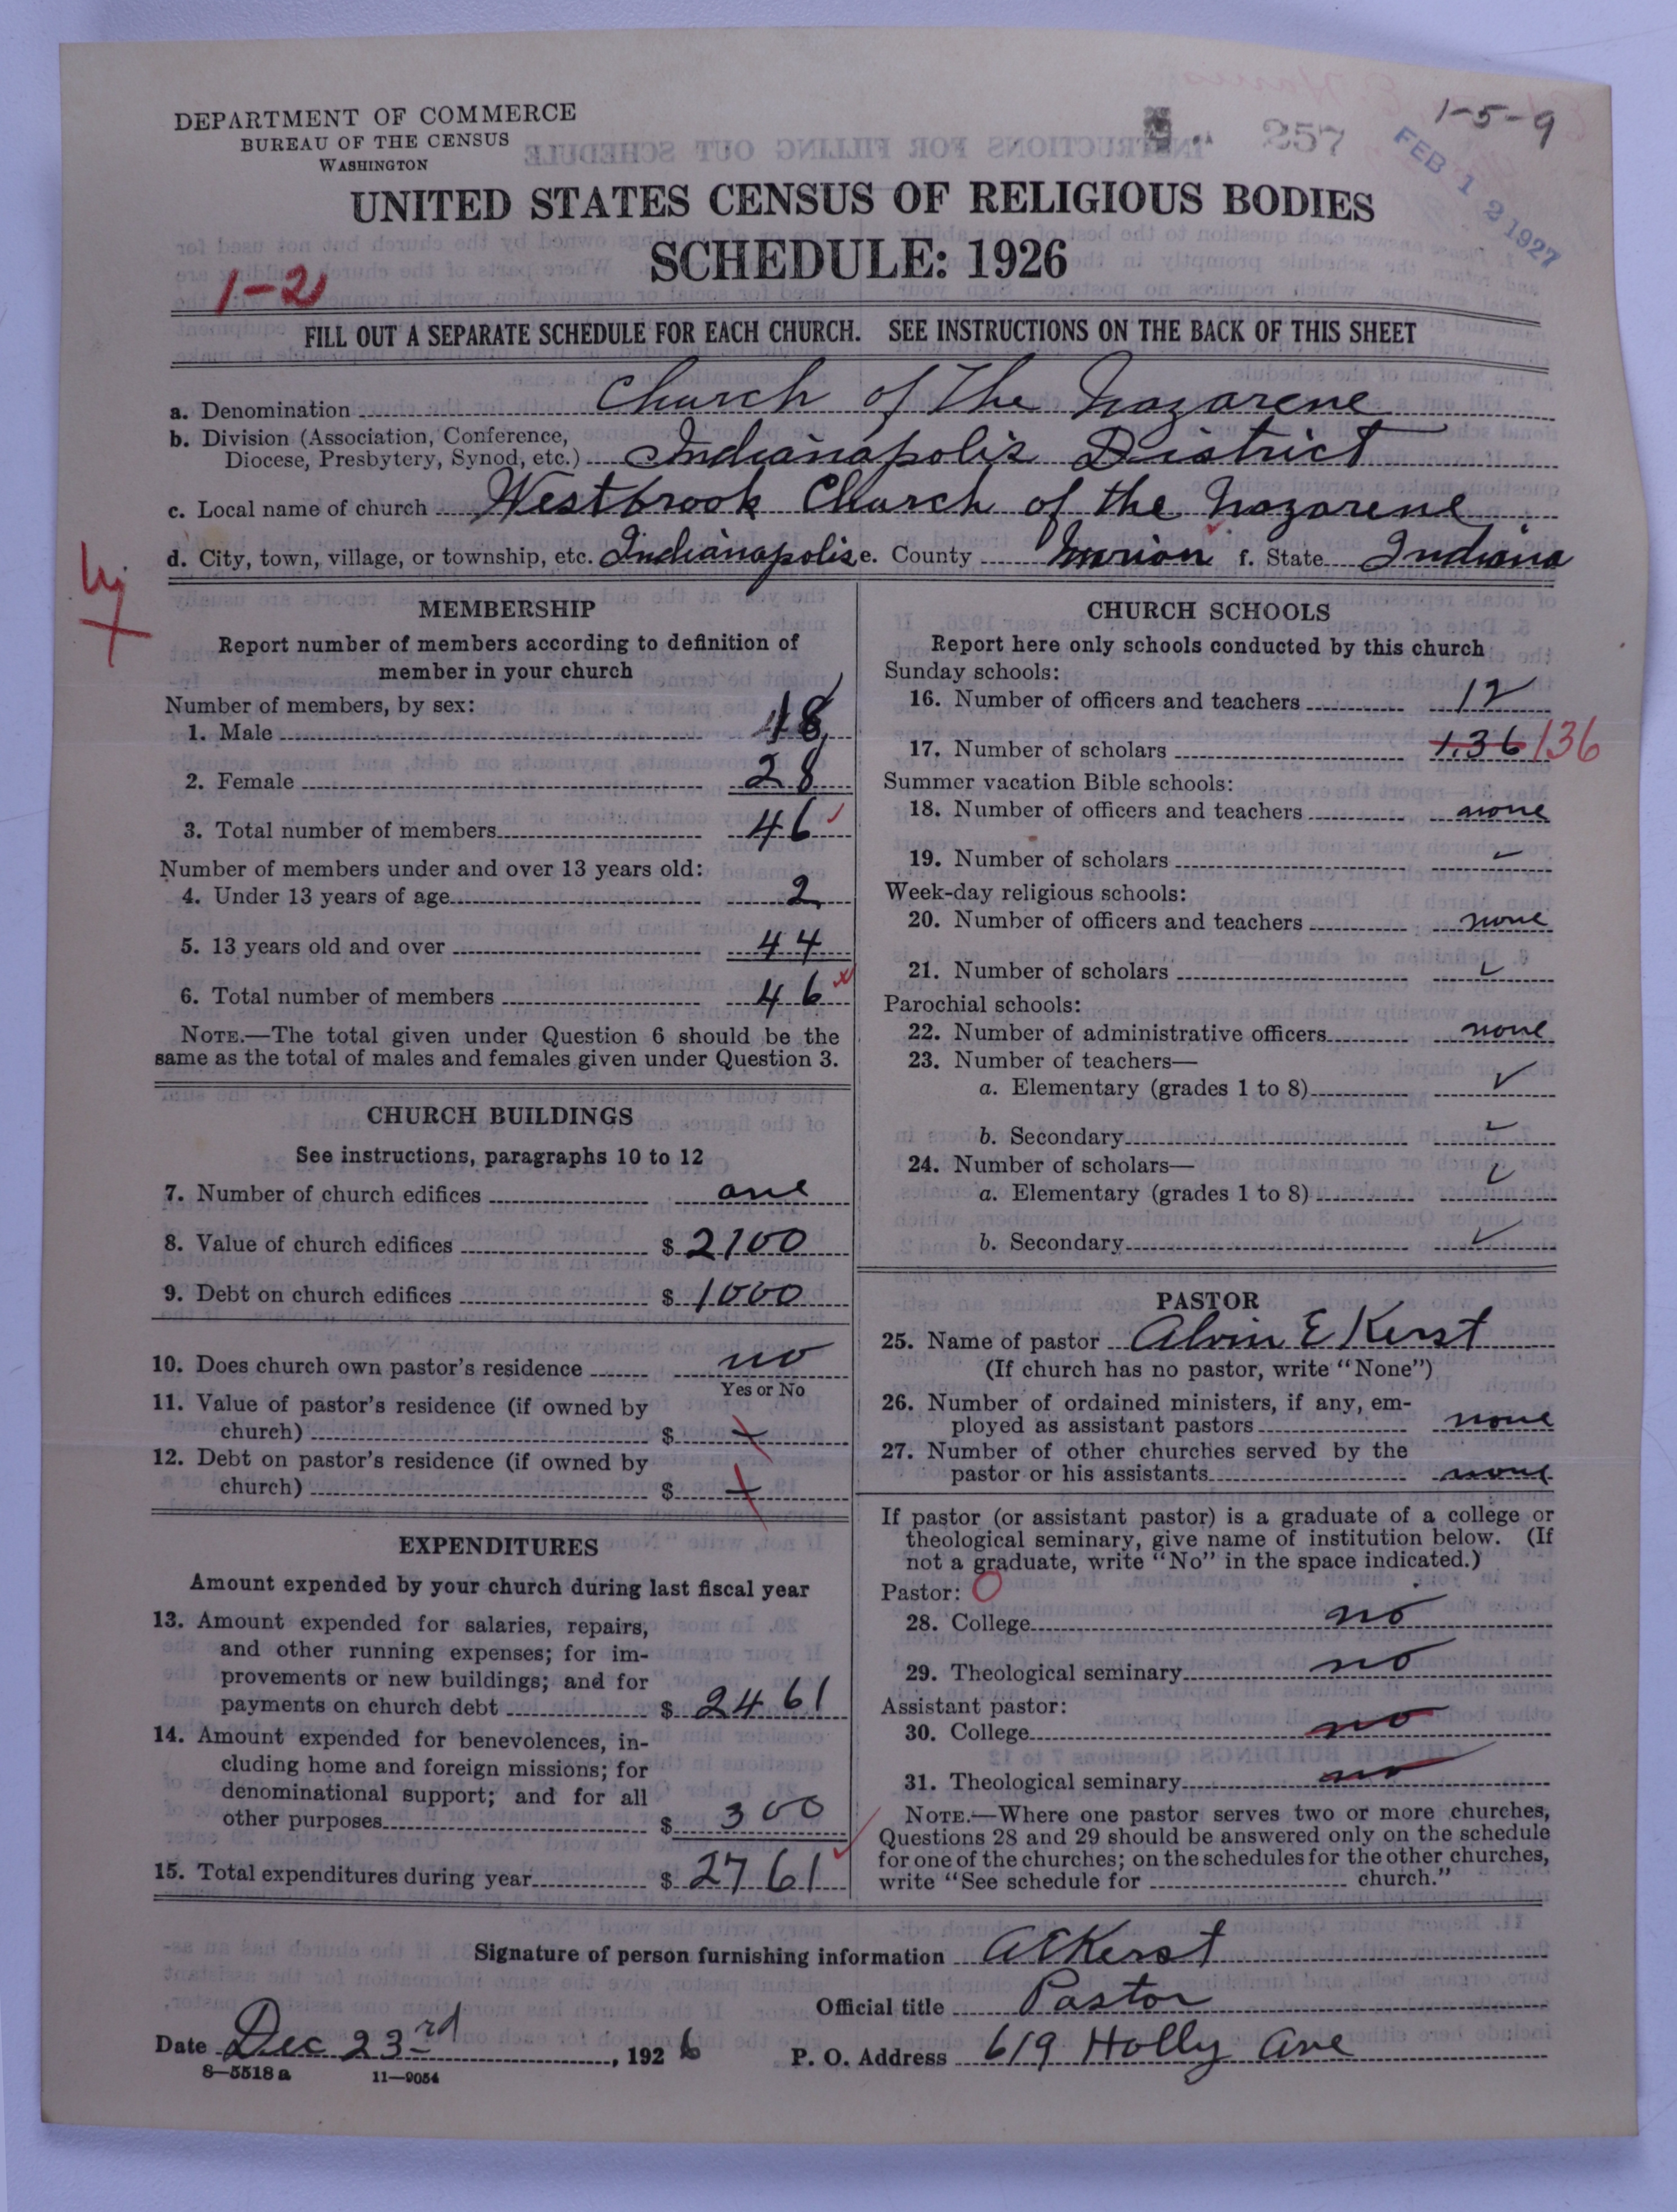 1-5-9
DEPARTMENT OF COMMERCE
BUREAU OF THE CENSUS
WASHINGTON
257
FEB 12 1927
UNITED STATES CENSUS OF RELIGIOUS BODIES
SCHEDULE: 1926
1-2
FILL OUT A SEPARATE SCHEDULE FOR EACH CHURCH. SEE INSTRUCTIONS ON THE BACK OF THIS SHEET
a. Denomination Church of The Nazarene
b. Division (Association, Conference,
Diocese, Presbytery, Synod, etc.) Indianapolis District
c. Local name of church Westbrook Church of the Nazarene
d. City, town, village, or township, etc. Indianapolis e. County Marion f. State Indiana
MEMBERSHIP
Report number of members according to definition of
member in your church
Number of members, by sex:
1. Male 18
2. Female 28
3. Total number of members 46
Number of members under and over 13 years old:
4. Under 13 years of age 2
5. 13 years old and over 44
6. Total number of members 46
NOTE.—The total given under Question 6 should be the
same as the total of males and females given under Question 3.
CHURCH BUILDINGS
See instructions, paragraphs 10 to 12
7. Number of church edifices one
8. Value of church edifices $ 2100
9. Debt on church edifices $ 1000
10. Does church own pastor's residence no
Yes or No
11. Value of pastor's residence (if owned by
church) $
12. Debt on pastor's residence (if owned by
church) $
EXPENDITURES
Amount expended by your church during last fiscal year
13. Amount expended for salaries, repairs,
and other running expenses; for im-
provements or new buildings; and for
payments on church debt $ 2461
14. Amount expended for benevolences, in-
cluding home and foreign missions; for
denominational support; and for all
other purposes $ 300
15. Total expenditures during year $ 2761
CHURCH SCHOOLS
Report here only schools conducted by this church
Sunday schools:
16. Number of officers and teachers 12
17. Number of scholars 136 136
Summer vacation Bible schools:
18. Number of officers and teachers none
19. Number of scholars
Week-day religious schools:
20. Number of officers and teachers none
21. Number of scholars
Parochial schools:
22. Number of administrative officers none
23. Number of teachers—
a. Elementary (grades 1 to 8)
b. Secondary
24. Number of scholars—
a. Elementary (grades 1 to 8)
b. Secondary
PASTOR
25. Name of pastor Alvin E Kerst
(If church has no pastor, write "None")
26. Number of ordained ministers, if any, em-
ployed as assistant pastors none
27. Number of other churches served by the
pastor or his assistants none
If pastor (or assistant pastor) is a graduate of a college or
theological seminary, give name of institution below. (If
not a graduate, write "No" in the space indicated.)
Pastor: O
28. College no
29. Theological seminary no
Assistant pastor:
30. College no
31. Theological seminary no
NOTE.—Where one pastor serves two or more churches,
Questions 28 and 29 should be answered only on the schedule
for one of the churches; on the schedules for the other churches,
write "See schedule for church."
Signature of person furnishing information A E Kerst
Official title Pastor
Date Dec 23rd, 1926 P. O. Address 619 Holly Ave
8-5518 a 11-9054